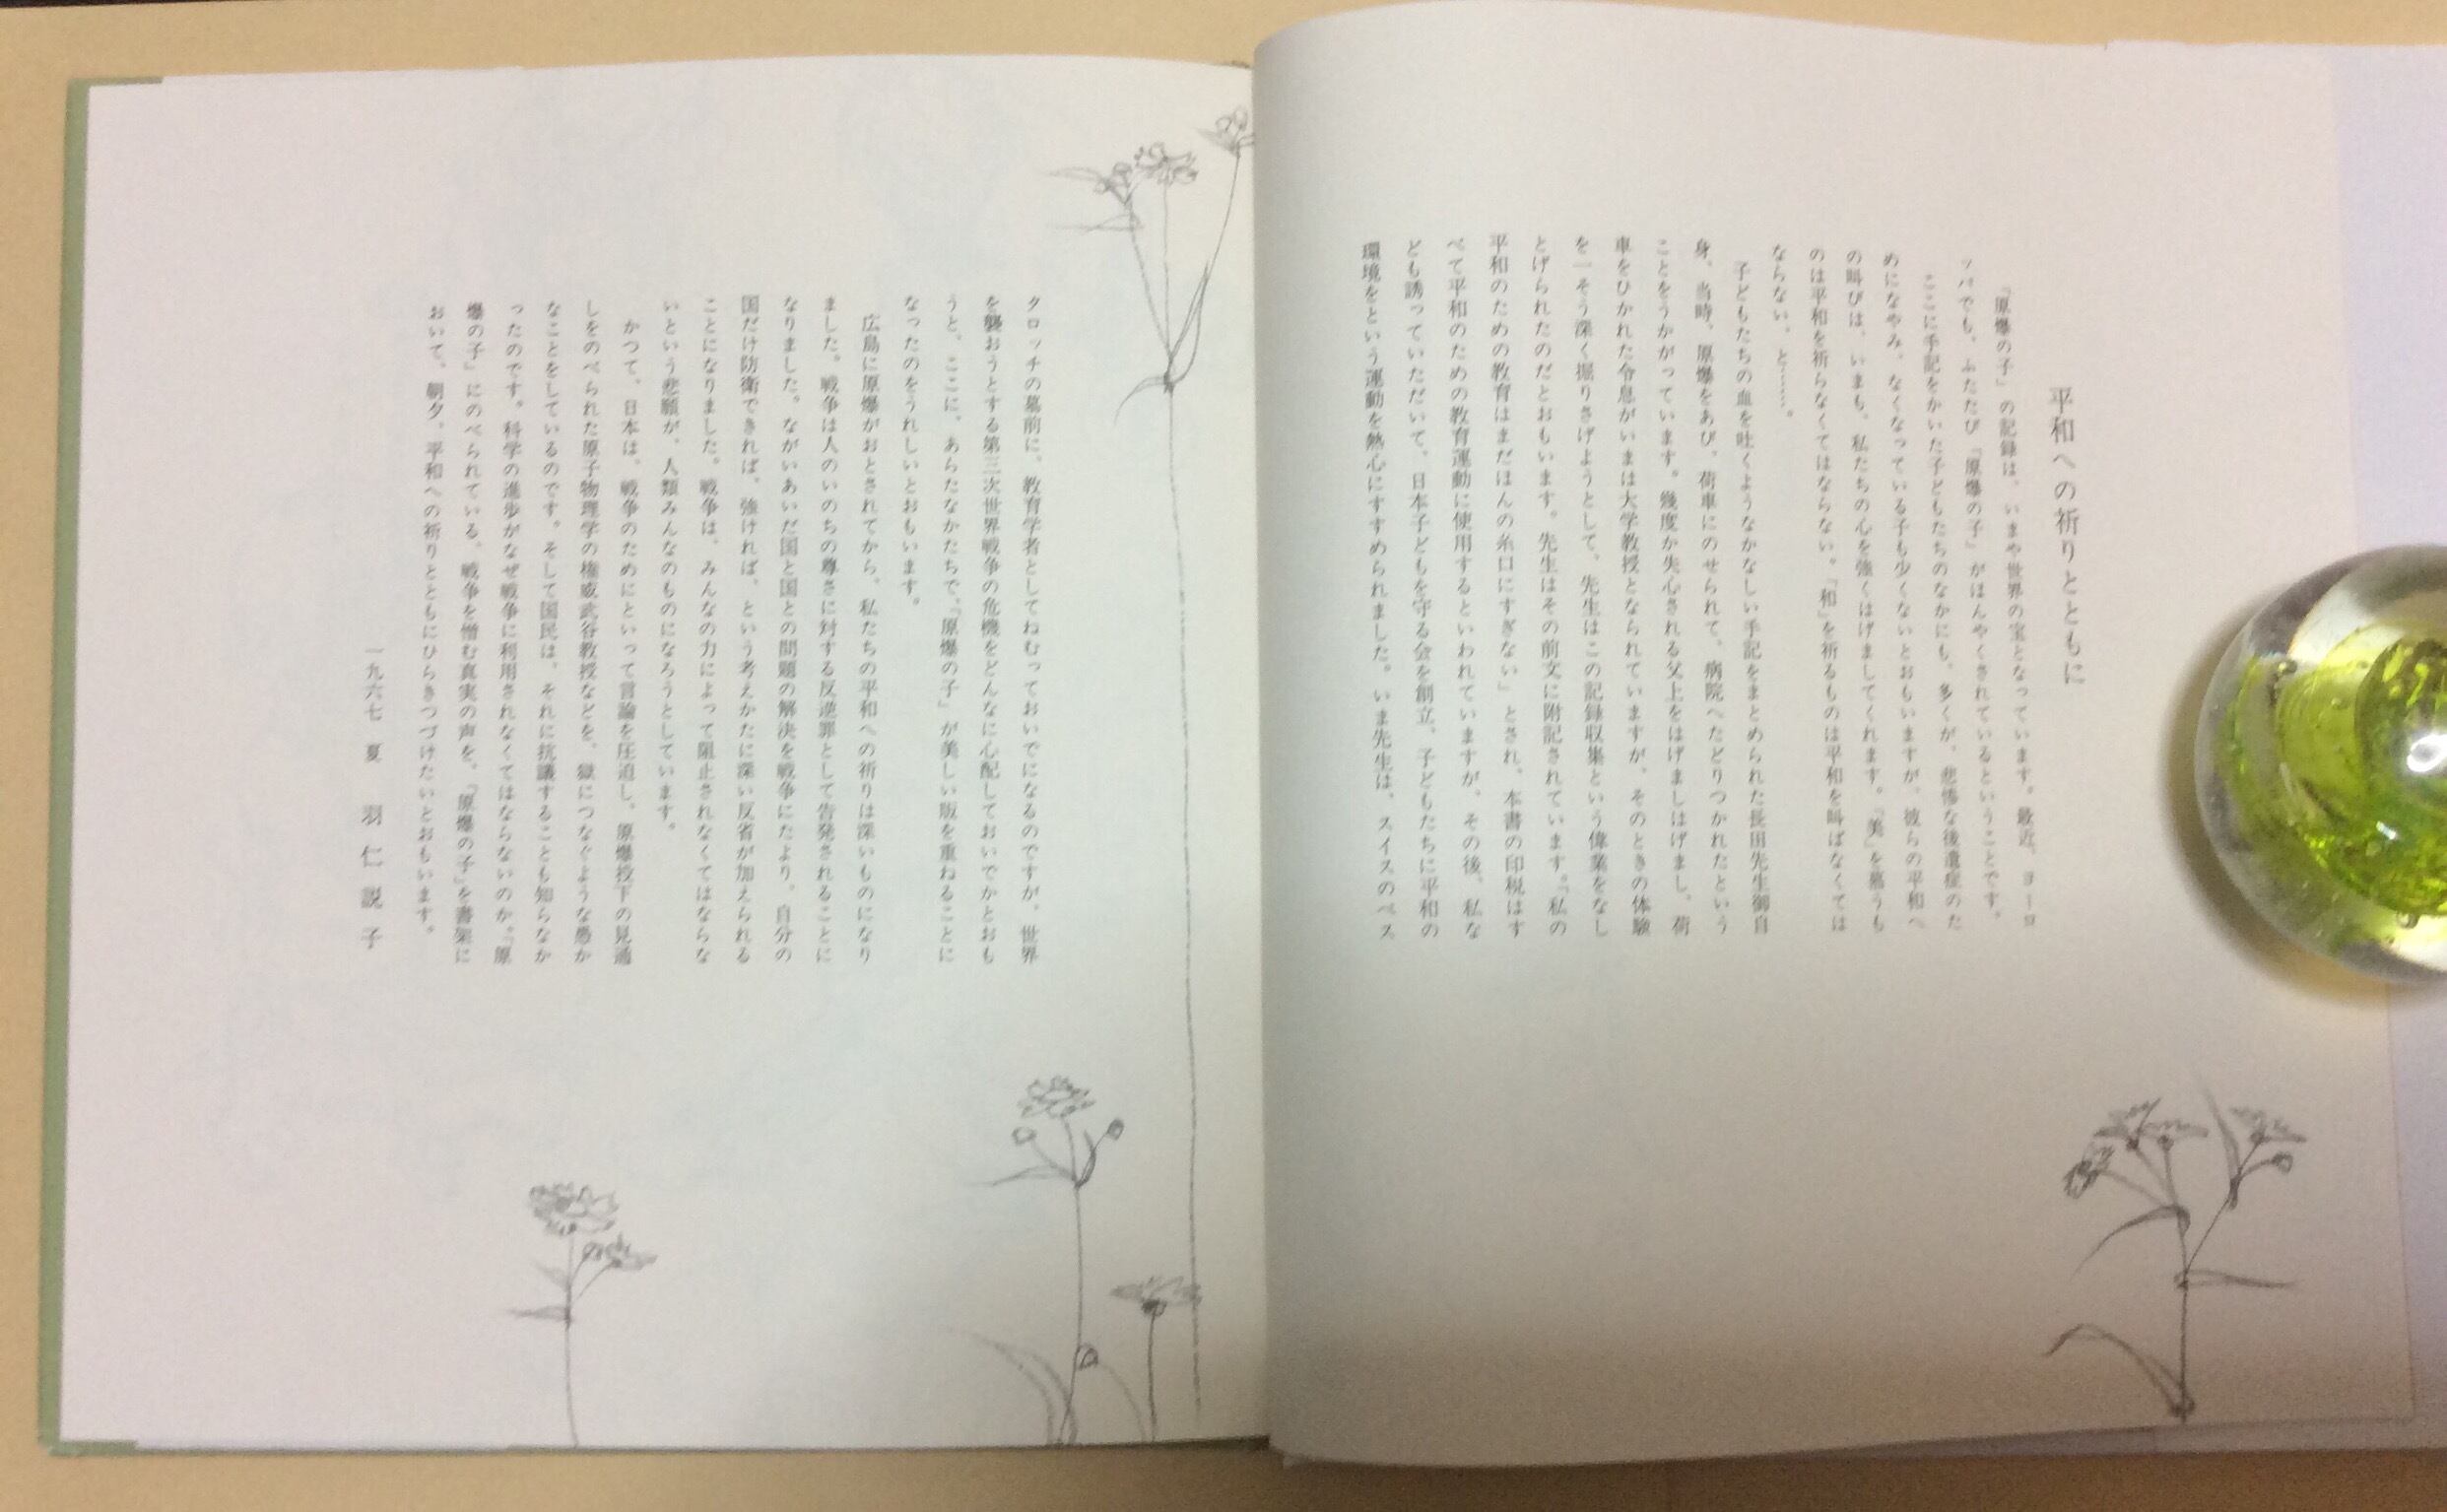 平和への祈りとともに
『原爆の子』の記録は、いまや世界の宝となっています。最近、ヨーロ
ッパでも、ふたたび『原爆の子』がほんやくされているということです。
ここに手記をかいた子どもたちのなかにも、多くが、悲惨な後遺症のた
めになやみ、なくなっている子も少くないとおもいますが、彼らの平和へ
の叫びは、いまも、私たちの心を強くはげましてくれます。『美』を慕うも
のは平和を祈らなくてはならない。『和』を祈るものは平和を叫ばなくては
ならない、と……。
子どもたちの血を吐くようなかなしい手記をまとめられた長田先生御自
身、当時、原爆をあび、荷車にのせられて、病院へたどりつかれたという
ことをうかがっています。幾度か失心される父上をはげましはげまし、荷
車をひかれた令息がいまは大学教授となられていますが、そのときの体験
を一そう深く掘りさげようとして、先生はこの記録収集という偉業をなし
とげられたのだとおもいます。先生はその前文に附記されています。『私の
平和のための教育はまだほんの糸口にすぎない」とされ、本書の印税はす
べて平和のための教育運動に使用するといわれていますが、その後、私な
ども誘っていただいて、日本子どもを守る会を創立、子どもたちに平和の
環境をという運動を熱心にすすめられました。いま先生は、スイスのペス
タロッチの墓前に、教育学者としてねむっておいでになるのですが、世界
を襲おうとする第三次世界戦争の危機をどんなに心配しておいでかとおも
うと、ここに、あらたなかたちで、『原爆の子』が美しい版を重ねることに
なったのをうれしいとおもいます。
広島に原爆がおとされてから、私たちの平和への祈りは深いものになり
ました。戦争は人のいのちの尊さに対する反逆罪として告発されることに
なりました。ながいあいだ国と国との間題の解決を戦争にたより、自分の
国だけ防衛できれば、強ければ、という考えかたに深い反省が加えられる
ことになりました。戦争は、みんなの力によって阻止されなくてはならな
いという悲願が、人類みんなのものになろうとしています。
かつて、日本は、戦争のためにといって言論を圧迫し、原爆投下の見通
しをのべられた原子物理学の権威武谷教授などを、獄につなぐような愚か
なことをしているのです。そして国民は、それに抗議することも知らなか
ったのです。科学の進歩がなぜ戦争に利用されなくてはならないのか。『原
爆の子』にのべられている、戦争を憎む真実の声を、『原爆の子』を書架に
おいて、朝夕、平和への祈りとともにひらきつづけたいとおもいます。
一九六七 夏 羽仁説子